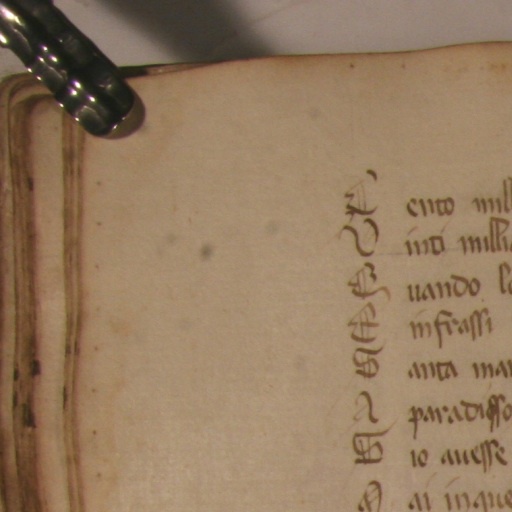 C ento mill
V inti milli
Q uando la
E infrassi
S anta mar
E paradisso
S io auesse
M ai in que